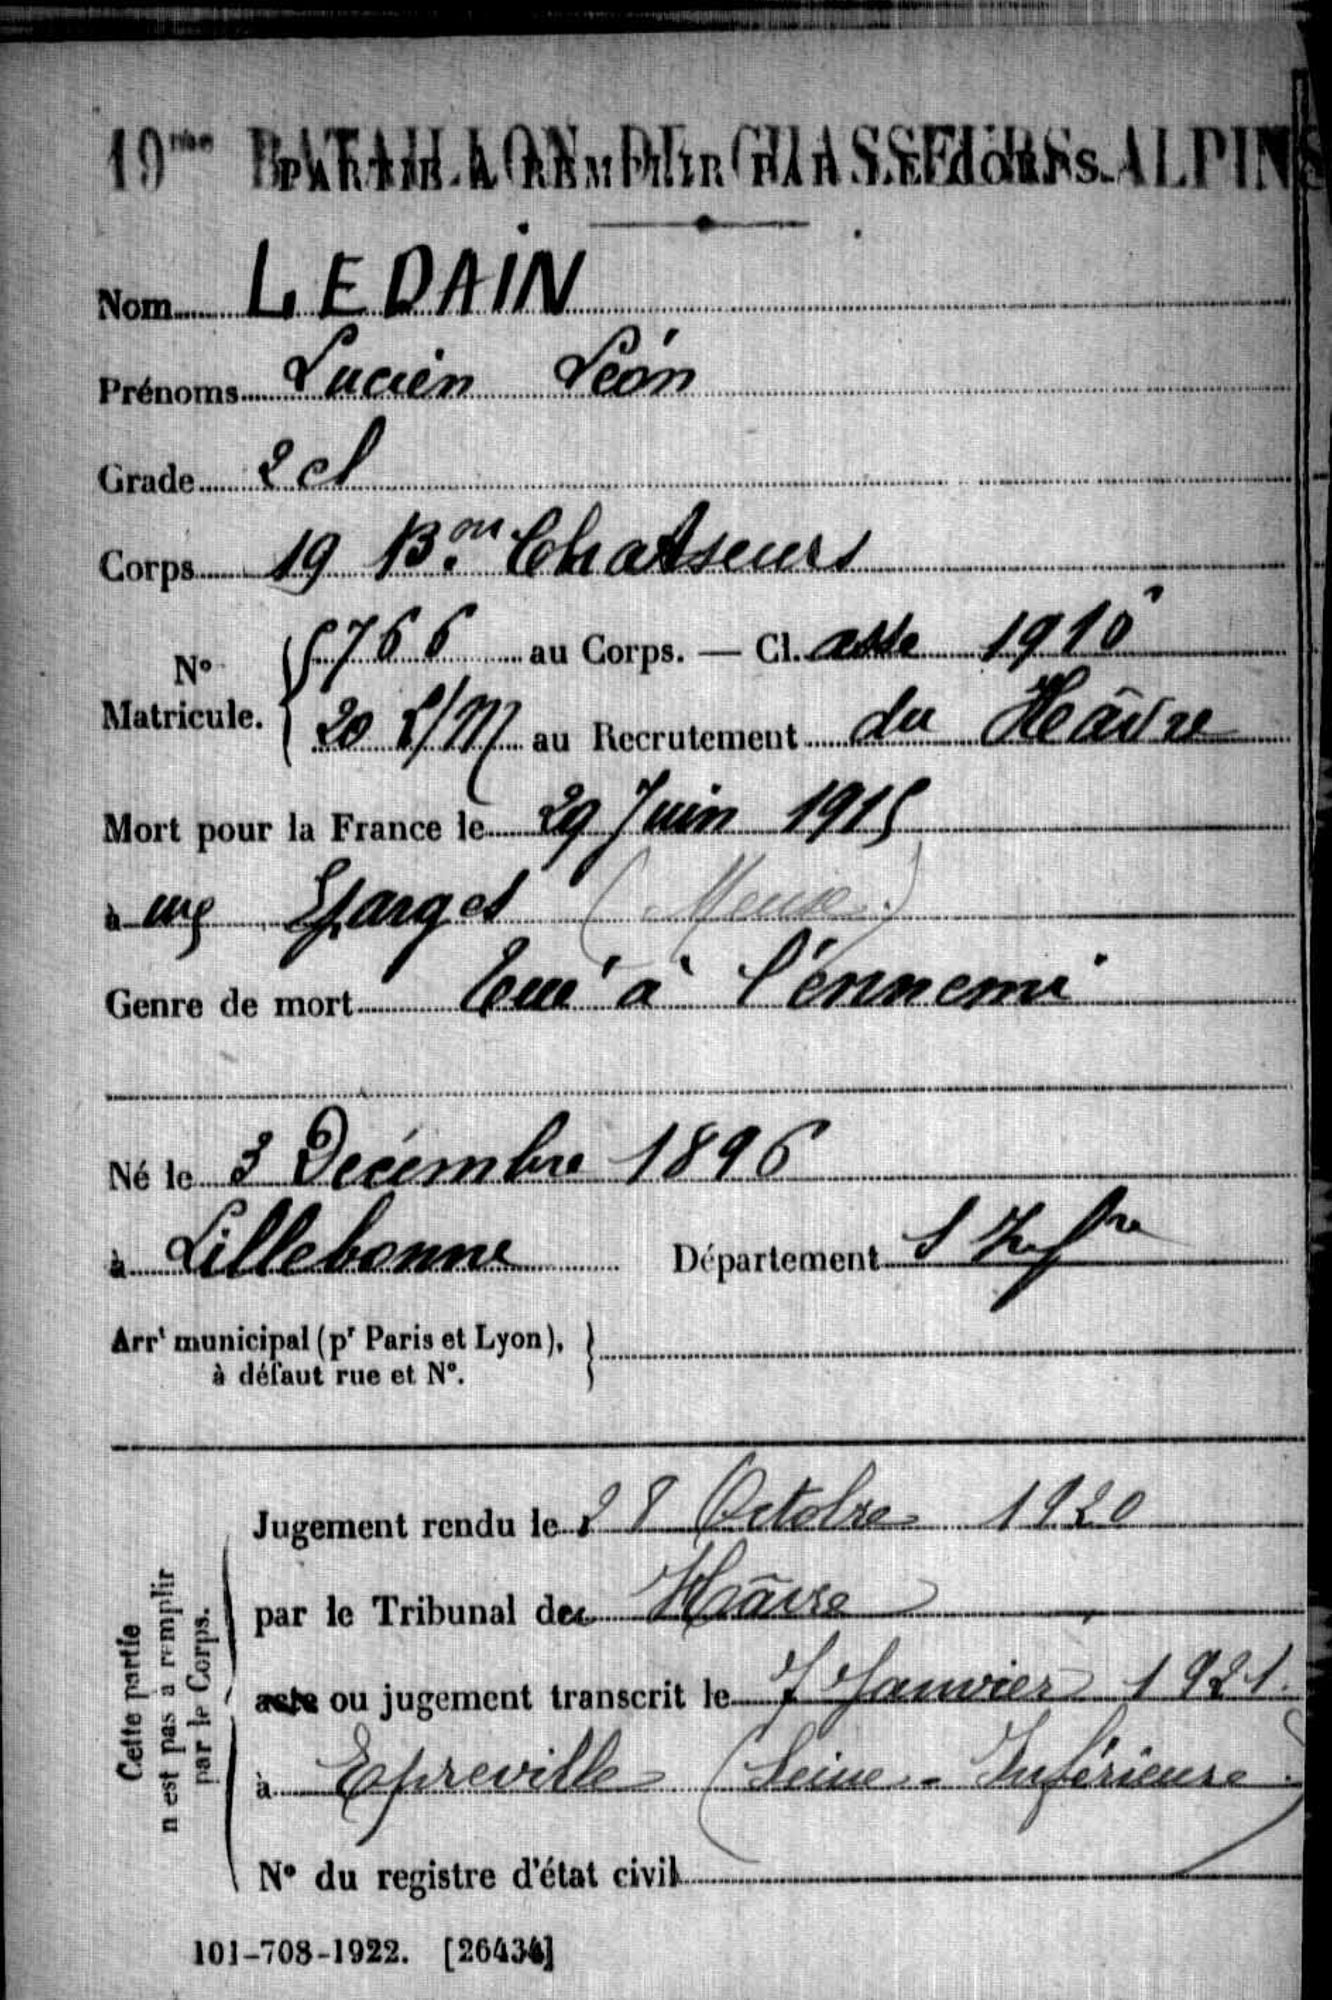 19me BATAILLON DE CHASSEURS ALPINS
PARTIE À REMPLIR PAR LE CORPS.
Nom LEDAIN
Prénoms Lucien Léon
Grade 2 cl
Corps 19 Bon Chasseurs
No Matricule. { 5766 au Corps. — Cl. asse 1916
20 L/M au Recrutement du Hâvre
Mort pour la France le 29 Juin 1915
à aux Eparges (Meuse)
Genre de mort Tué à l'ennemi
Né le 3 Décembre 1896
à Lillebonne Département S Infre
Arrt municipal (pr Paris et Lyon), }
à défaut rue et No.
Cette partie
n'est pas à remplir
par le Corps.
Jugement rendu le 28 Octobre 1920
par le Tribunal du Hâvre
acte ou jugement transcrit le 7 Janvier 1921.
à Epreville (Seine-Inférieure)
No du registre d'état civil
101-708-1922. [26434]